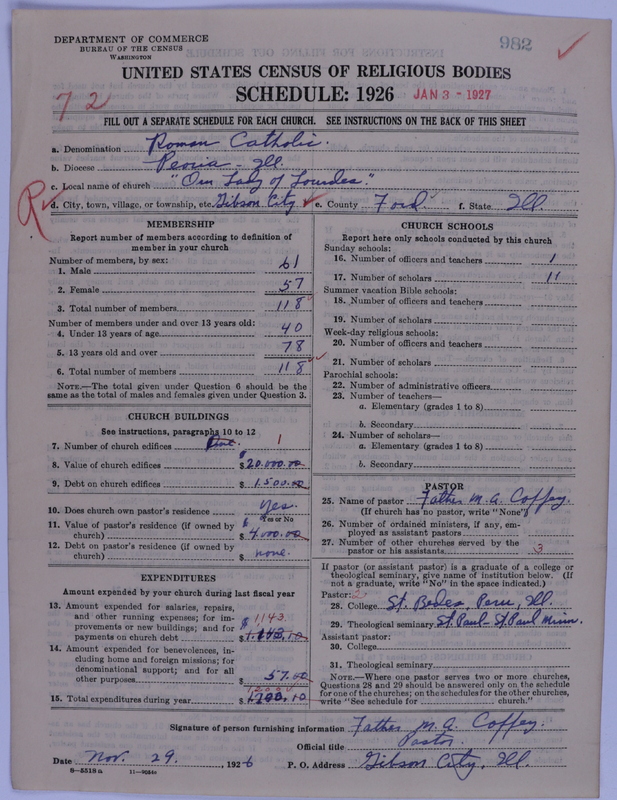 DEPARTMENT OF COMMERCE
BUREAU OF THE CENSUS
WASHINGTON
982
UNITED STATES CENSUS OF RELIGIOUS BODIES
SCHEDULE: 1926 JAN 3 - 1927
72
FILL OUT A SEPARATE SCHEDULE FOR EACH CHURCH. SEE INSTRUCTIONS ON THE BACK OF THIS SHEET
a. Denomination Roman Catholic.
b. Diocese Peoria - Ill.
c. Local name of church "Our Lady of Lourdes."
R
d. City, town, village, or township, etc. Gibson City e. County Ford f. State Ill.
MEMBERSHIP
Report number of members according to definition of
member in your church
Number of members, by sex:
1. Male 61
2. Female 57
3. Total number of members 118
Number of members under and over 13 years old:
4. Under 13 years of age 40
5. 13 years old and over 78
6. Total number of members 118
NOTE.—The total given under Question 6 should be the
same as the total of males and females given under Question 3.
CHURCH BUILDINGS
See instructions, paragraphs 10 to 12
7. Number of church edifices 1
8. Value of church edifices $20.000.00
9. Debt on church edifices $1.500.00
10. Does church own pastor's residence yes.
Yes or No
11. Value of pastor's residence (if owned by
church) $4.000.00
12. Debt on pastor's residence (if owned by
church) $none.
EXPENDITURES
Amount expended by your church during last fiscal year
13. Amount expended for salaries, repairs,
and other running expenses; for im-
provements or new buildings; and for
payments on church debt $1143. $1.143.10
14. Amount expended for benevolences, in-
cluding home and foreign missions; for
denominational support; and for all
other purposes $57.00
15. Total expenditures during year 1200 $1200.10
CHURCH SCHOOLS
Report here only schools conducted by this church
Sunday schools:
16. Number of officers and teachers 1
17. Number of scholars 11
Summer vacation Bible schools:
18. Number of officers and teachers
19. Number of scholars
Week-day religious schools:
20. Number of officers and teachers
21. Number of scholars
Parochial schools:
22. Number of administrative officers
23. Number of teachers—
a. Elementary (grades 1 to 8)
b. Secondary
24. Number of scholars—
a. Elementary (grades 1 to 8)
b. Secondary
PASTOR
25. Name of pastor Father M. A. Coffey.
(If church has no pastor, write "None")
26. Number of ordained ministers, if any, em-
ployed as assistant pastors
27. Number of other churches served by the
pastor or his assistants 3
If pastor (or assistant pastor) is a graduate of a college or
theological seminary, give name of institution below. (If
not a graduate, write "No" in the space indicated.)
Pastor: 2
28. College St. Bedes, Peru, Ill.
29. Theological seminary St. Paul St. Paul Minn.
Assistant pastor:
30. College
31. Theological seminary
NOTE.—Where one pastor serves two or more churches,
Questions 28 and 29 should be answered only on the schedule
for one of the churches; on the schedules for the other churches,
write "See schedule for church."
Signature of person furnishing information Father M. A. Coffey.
Official title Pastor.
Date Nov. 29. 1926 P. O. Address Gibson City, Ill.
8—5518a 11—9054a